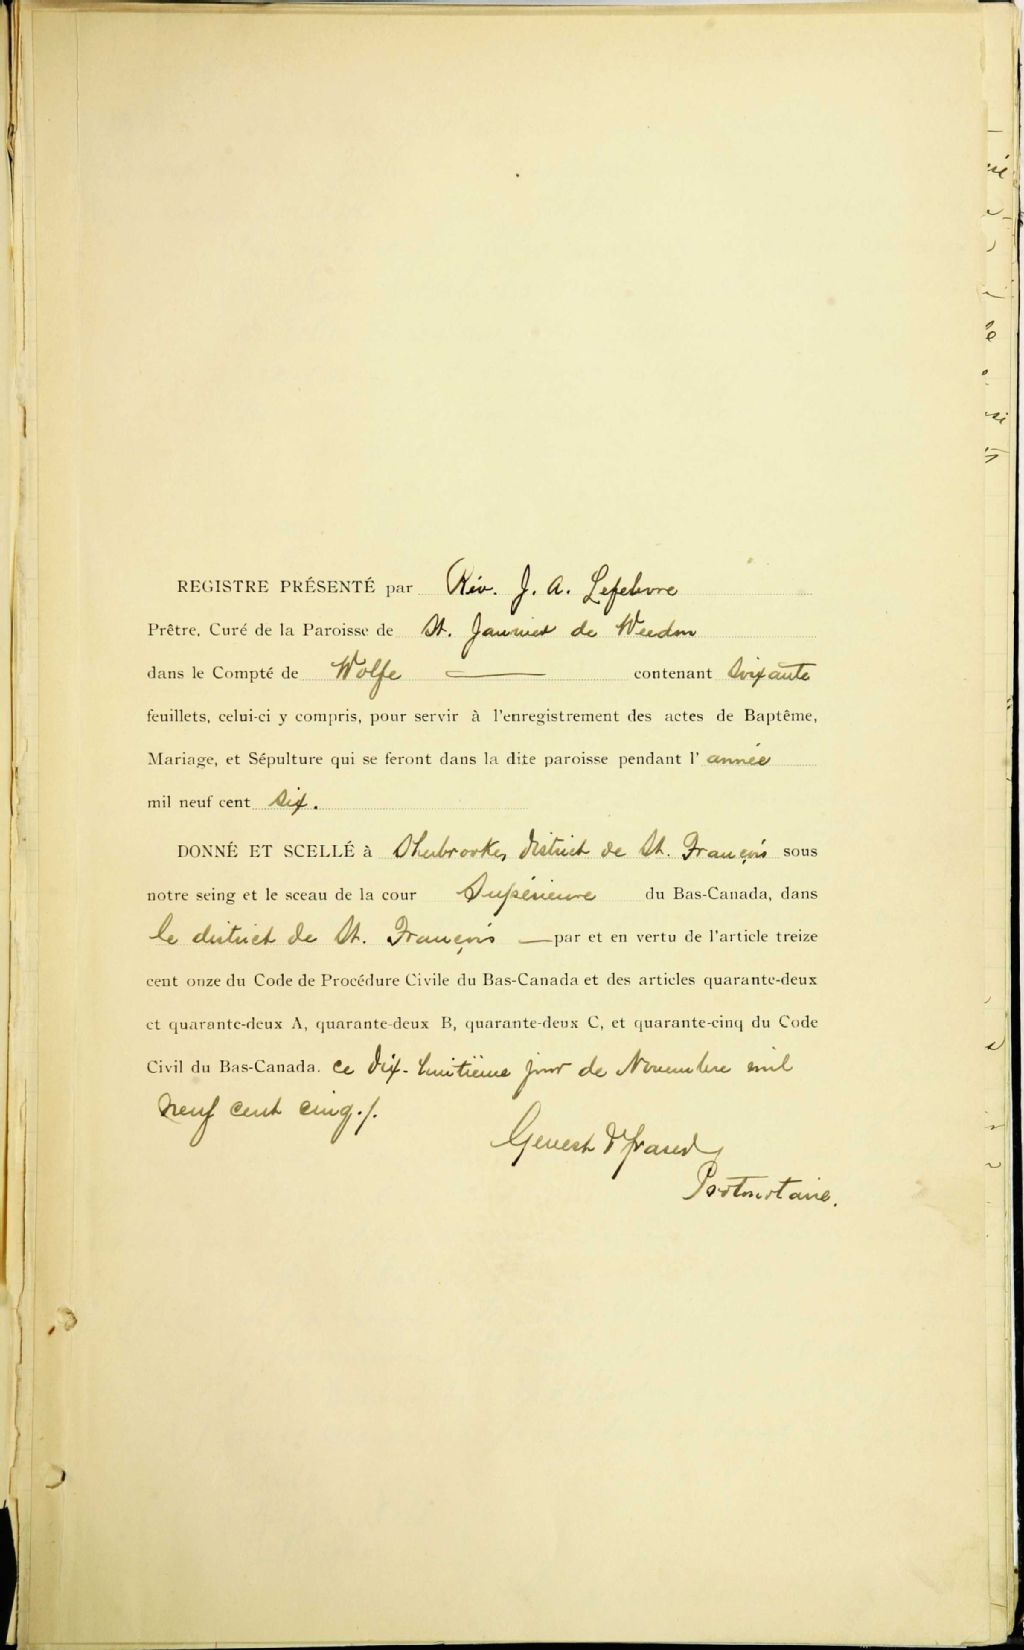 REGISTRE PRÉSENTÉ par Rév. J. A. Lefebvre
Prêtre, Curé de la Paroisse de St. Janvier de Weedon
dans le Compté de Wolfe — contenant Soixante
feuillets, celui-ci y compris, pour servir à l'enregistrement des actes de Baptême,
Mariage, et Sépulture qui se feront dans la dite paroisse pendant l' année
mil neuf cent Six.
DONNÉ ET SCELLÉ à Sherbrooke, District de St. François sous
notre seing et le sceau de la cour Supérieure du Bas-Canada, dans
le district de St. François — par et en vertu de l'article treize
cent onze du Code de Procédure Civile du Bas-Canada et des articles quarante-deux
et quarante-deux A, quarante-deux B, quarante-deux C, et quarante-cinq du Code
Civil du Bas-Canada. ce dix-huitième jour de Novembre mil
neuf cent cinq./.
Genest & Fraser
Protonotaire.